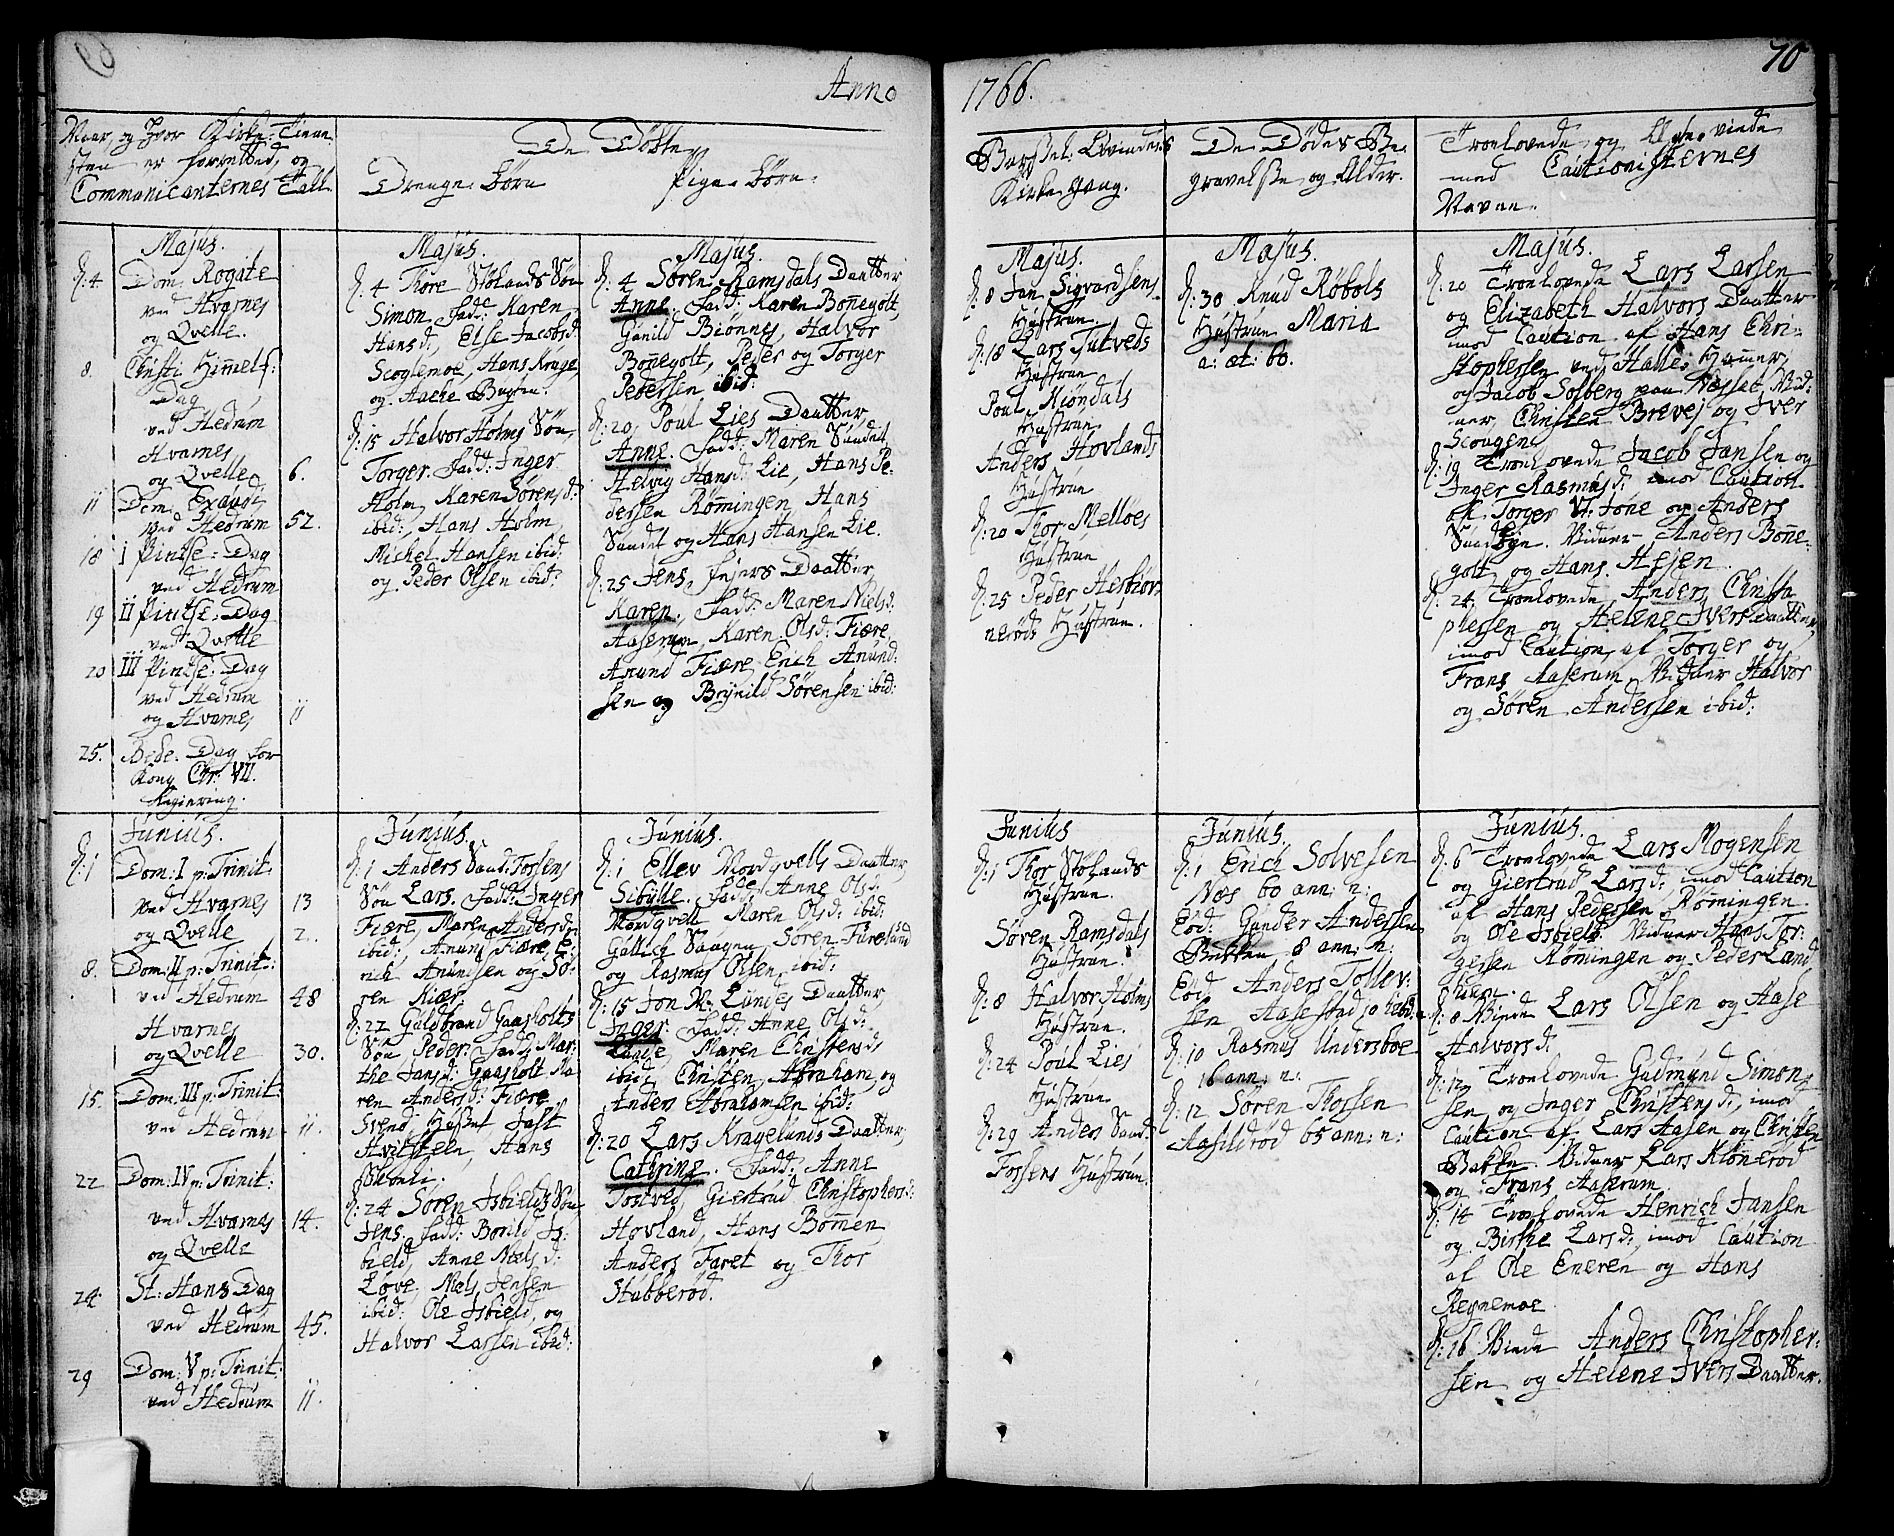 Anno
1766.
70
Naar og hvor Kirke-Tienesten er forretted, og
Communicanternes Tall.
De Døbte
Drenge-Børn
Pige-Børn.
Barsel-Qvindernes
Kirkegang.
De Dødes Begravelse og Alder.
Troelovede og Ægteviede
med Cautionisternes
Navne.
Majus.
d: 4 Dom. Rogate
ved Hvarnes
og Qvelle.
8. Christi Himmelf:
Dag
ved Hedrum
Hvarnes
og Qvelle 6.
11 Dom. Exaudi
ved Hedrum 52.
18 I Pintse-Dag
ved Hedrum
19 II Pintse-Dag
ved Qvelle
20 III Pintse-Dag
ved Hedrum
og Hvarnes 11
25. Bede-Dag for
Kong Chr: VII.
Regiering.
Majus.
d: 4 Thore Stølands Søn
Simon. Fadd: Karen
Hansd:, Else Jacobsd:
Scoglemoe, Hans Krage,
og Aache
d: 15 Halvor Holms Søn,
Torger. Fadd: Inger
Holm, Karen Sørensd:
ibid:, Hans Holm,
Michel Hansen ibid:
og Peder Olsen ibid:
Majus.
d: 4 Søren Ramsdals Daatter
Anne. Fadd: Karen Bonnegolt,
Gunild Biønnes, Halvor
Bonnegolt, Peder og Torger
Pedersen ibid:
d: 20 Poul Lies Daatter
Anne. Fadd: Maren Sundet,
Helvig Hansd: Lie, Hans Pedersen Rømmingen, Hans
Sundet og Hans Hansen Lie.
d: 25 Jens Daatter
Karen. Fadd: Maren Nielsd:
Aaserum, Karen Olsd: Fiære,
Anund Fiære, Erich Anundsen og Brynild Sørensen ibid:
Majus.
d: 8 Jan Sigvardsens
Hustrue.
d: 18 Lars Tutveds
Hustrue
Poul Miøndals
Hustrue
Anders Hovlands
Hustrue
d: 20 Thor Melløes
Hustrue
d: 25 Peder Hestiørnerøds Hustrue.
Majus.
d: 30 Knud Røbols
Hustrue Maria
a: æt: 60.
Majus.
d: 20 Troelovede Lars Larsen
og Elizabeth Halvors Daatter
imod Caution af Hans Christophersen ved Halle-Hammer,
og Jacob Solberg paa Næsset. Vidner, Christen Brevej og Iver
Scougen.
d: 19 Troelovede Jacob Jansen og
Inger Rasmusd: imod Caution
af Torger og Anders
Vidner Anders Bonnegolt, og Hans Hejen
d: 24 Troelovede Anders Christophersen og Helene Ivers Daatter,
imod Caution af Torger og
Frans Aaserum. Vidner Halvor
og Søren Andersen ibid:
Junius.
d: 1 Dom: I p: Trinit:
ved Hvarnes 13
og Qvelle 2.
8. Dom: II p: Trinit:
ved Hedrum 48
Hvarnes
og Qvelle 30.
15. Dom: III p: Trinit:
ved Hedrum 11.
22 Dom: IV p: Trinit:
ved Hvarnes 14.
og Qvelle
24. St: Hans Dag
ved Hedrum 45.
29 Dom: V p: Trinit:
ved Hedrum 11.
Junius.
d: 1 Anders Sand-Forsens
Søn Lars. Fadd: Inger
Fiære, Maren Andersd:
ibid:, Anund Fiære, Erich Anundsen og Søren Kiær.
d: 22 Guldbrand Gaasholts
Søn Peder. Fadd: Marthe Jansd: Gaasholt, Karen Andersd: Fiære,
Svend Jast
Hvitsteen, Hans
d: 24 Søren Isbields Søn
Jens. Fadd: Borild Isbield, Anne Nielsd:
Løve, Niels Jensen
ibid: Ole Isbield, og
Halvor Larsen ibid:
Junius.
d: 1 Ellev Mordqvells Daatter
Sibylle. Fadd: Anne Olsd:
Mordqvell Maren Olsd: ibid:
Gullich Saugen, Søren Fureland
og Rasmus Olsen ibid:
d: 15 Jon Lundes Daatter
Inger. Fadd: Anne Olsd:
Lunde, Maren Christensd:
ibid: Christen, Abraham, og
Anders Abrahamsen ibid:
d: 20 Lars Kragelunds Daatter
Cathrine. Fadd: Anne
Tostved, Giertrud Christophersd:
Hovland, Hans Bommen
Anders Faret og Thor
Stubberød.
Junius
d: 1 Thor Stølands
Hustrue.
Søren Ramsdals
Hustrue.
d: 8 Halvor Holms
Hustrue.
d: 24 Poul Lies
Hustrue
d: 29 Anders Sand-
Forsens Hustrue.
Junius.
d: 1 Erich Solvesen
Næs 60 ann: n:
Eod: Gunder Andersen
Bakken 8 ann: n:
Eod: Anders Tollevsen Aasestad 10 hebd:
d: 10 Rasmus Undersboe
16 ann: n:
d: 12 Søren Thorsen
Aasildrød 65 ann: n:
Junius.
d: 6 Troelovede Lars Mogensen
og Giertrud Larsd:, imod Caution
af Hans Pedersen Rømingen
og Ole Isbield. Vidner Hans Torgersen Rømingen og Peder
d: 8 Viede Lars Olsen og Aase
Halvorsd:
d: 12 Troelovede Gudmund Simonsen og Inger Christensd:, imod
Caution af Lars Aasen og Christen
Bakke. Vidner Lars Klønerød
og Frans Aaserum.
d: 14 Troelovede Henrich Jansen
og Birthe Larsd:, imod Caution
af Ole Eneren og Hans
Regnemoe.
d: 16 Viede Anders Christophersen og Helene Ivers Daatter.